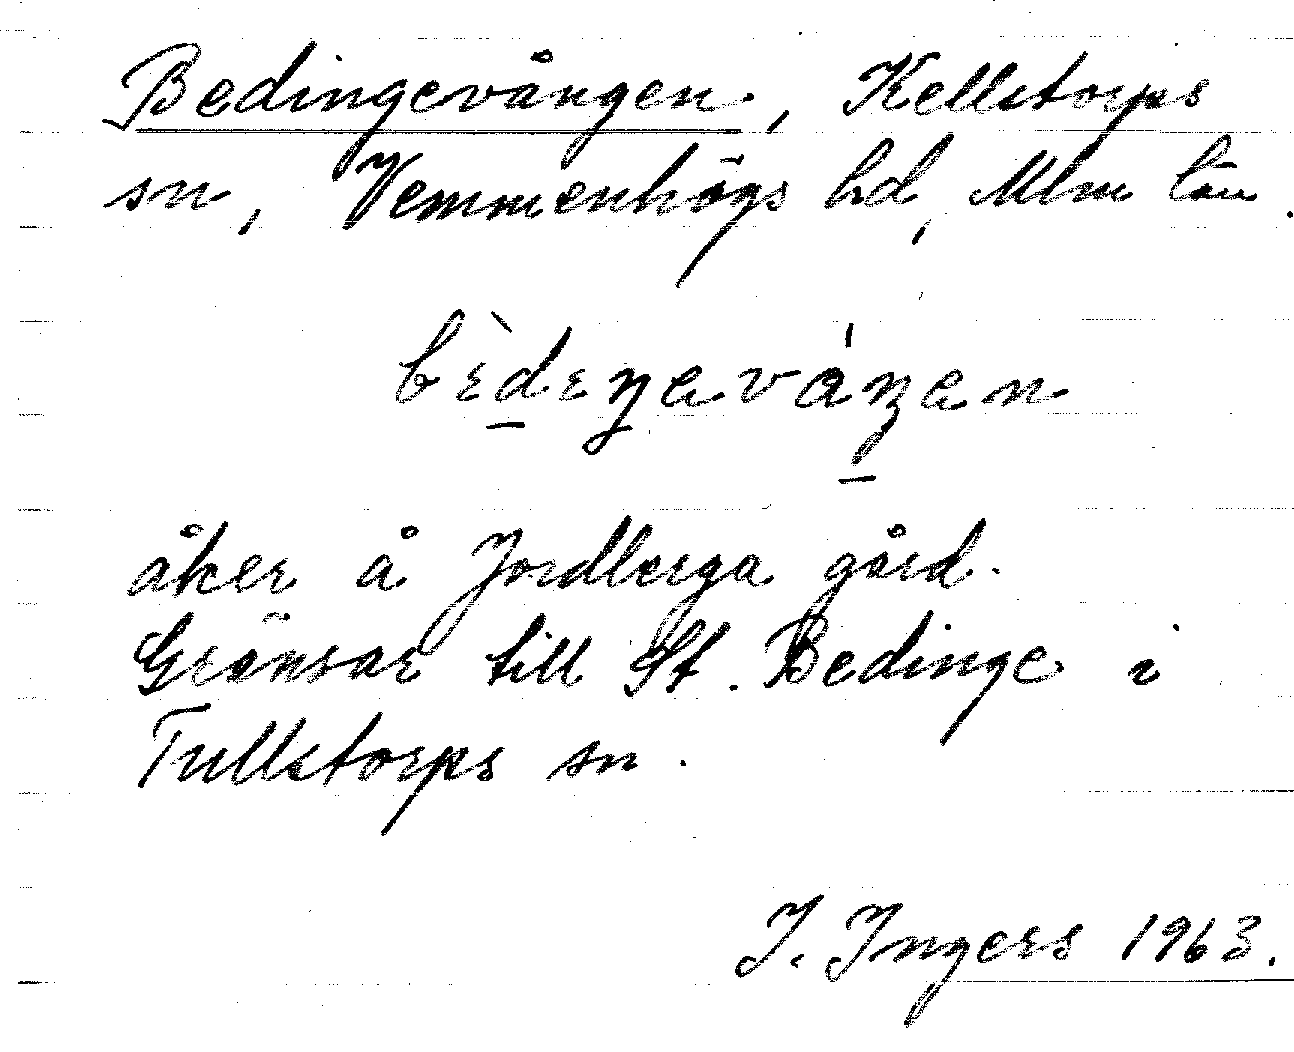 Bedingevången, Kellstorps
sn, Vemmenhögs hd, Mlm län.
åker å Jordberga gård.
Gränsar till St. Bedinge i
Tullstorps sn.
I. Ingers 1963.